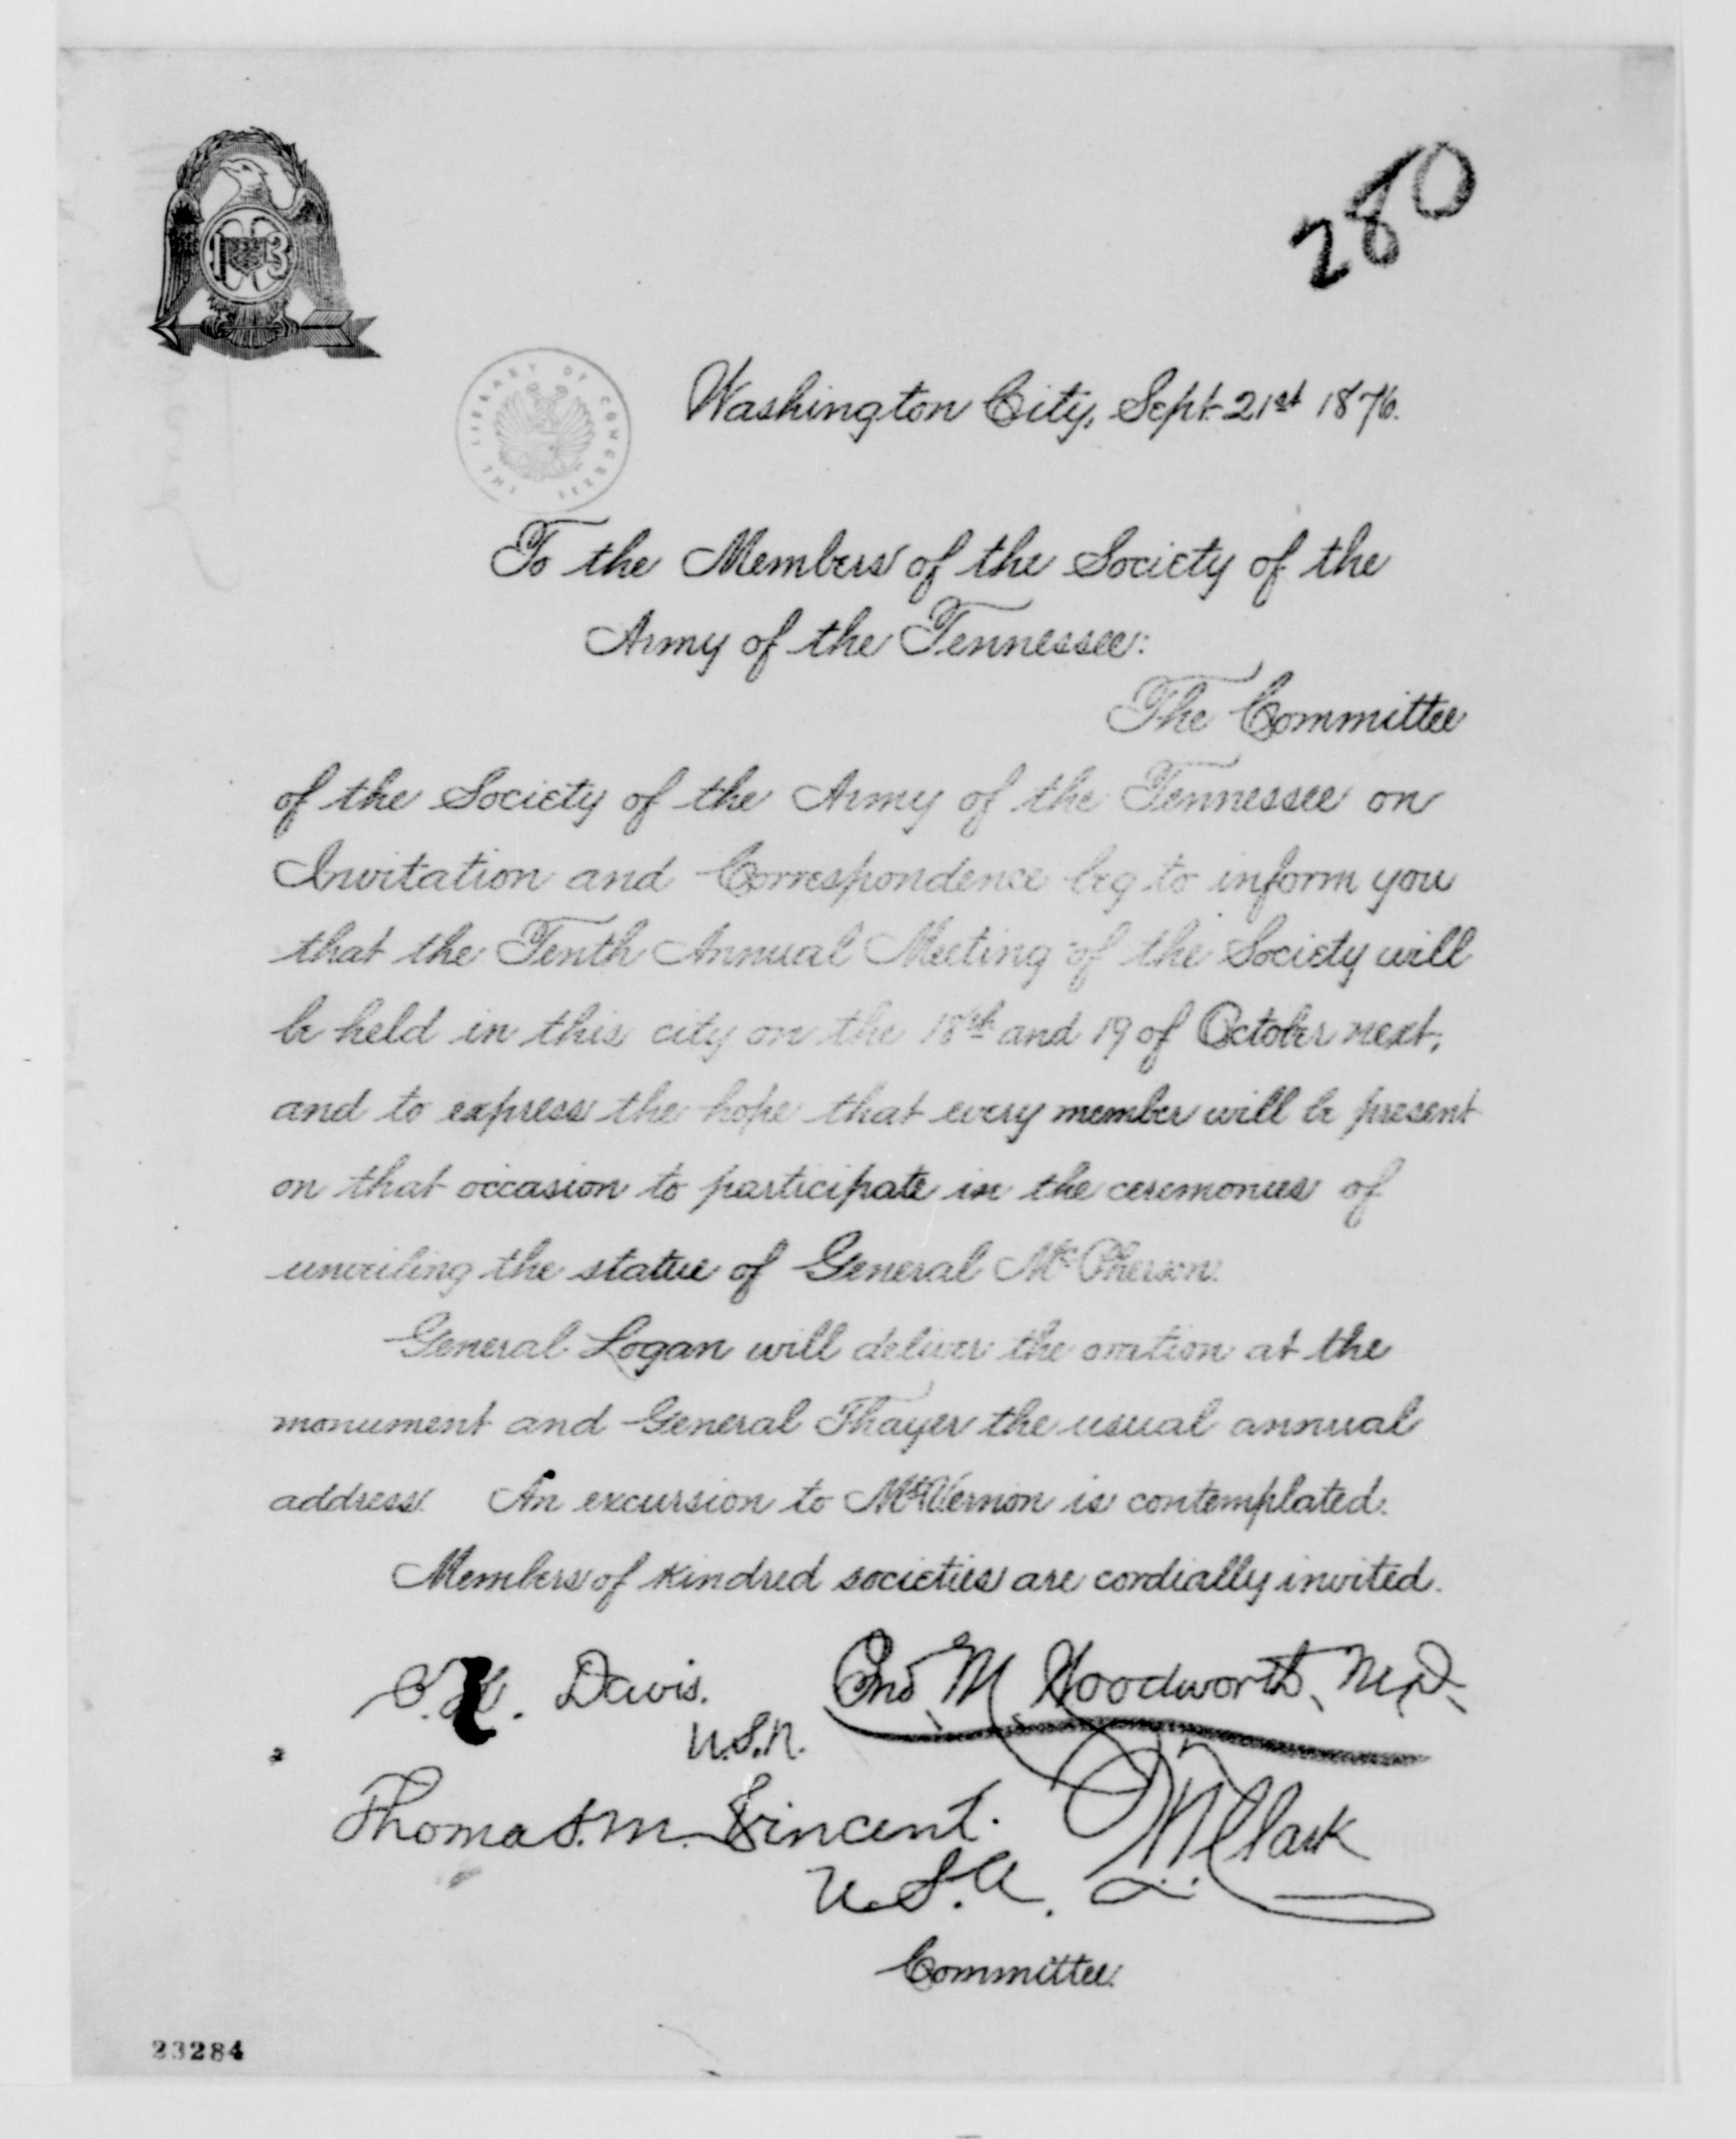 280
THE LIBRARY OF CONGRESS
Washington City, Sept. 21st 1876.
To the Members of the Society of the
Army of the Tennessee:
The Committee
of the Society of the Army of the Tennessee on
Invitation and Correspondence beg to inform you
that the Tenth Annual Meeting of the Society will
be held in this city on the 18th and 19 of October next,
and to express the hope that every member will be present
on that occasion to participate in the ceremonies of
unveiling the statue of General McPherson.
General Logan will deliver the oration at the
monument and General Thayer the usual annual
address. An excursion to Mt Vernon is contemplated.
Members of kindred societies are cordially invited.
Davis.
U.S.N.
Jno. M. Woodworth, M.D.
Thomas M. Vincent.
U.S.A.
Clark
Committee.
23284